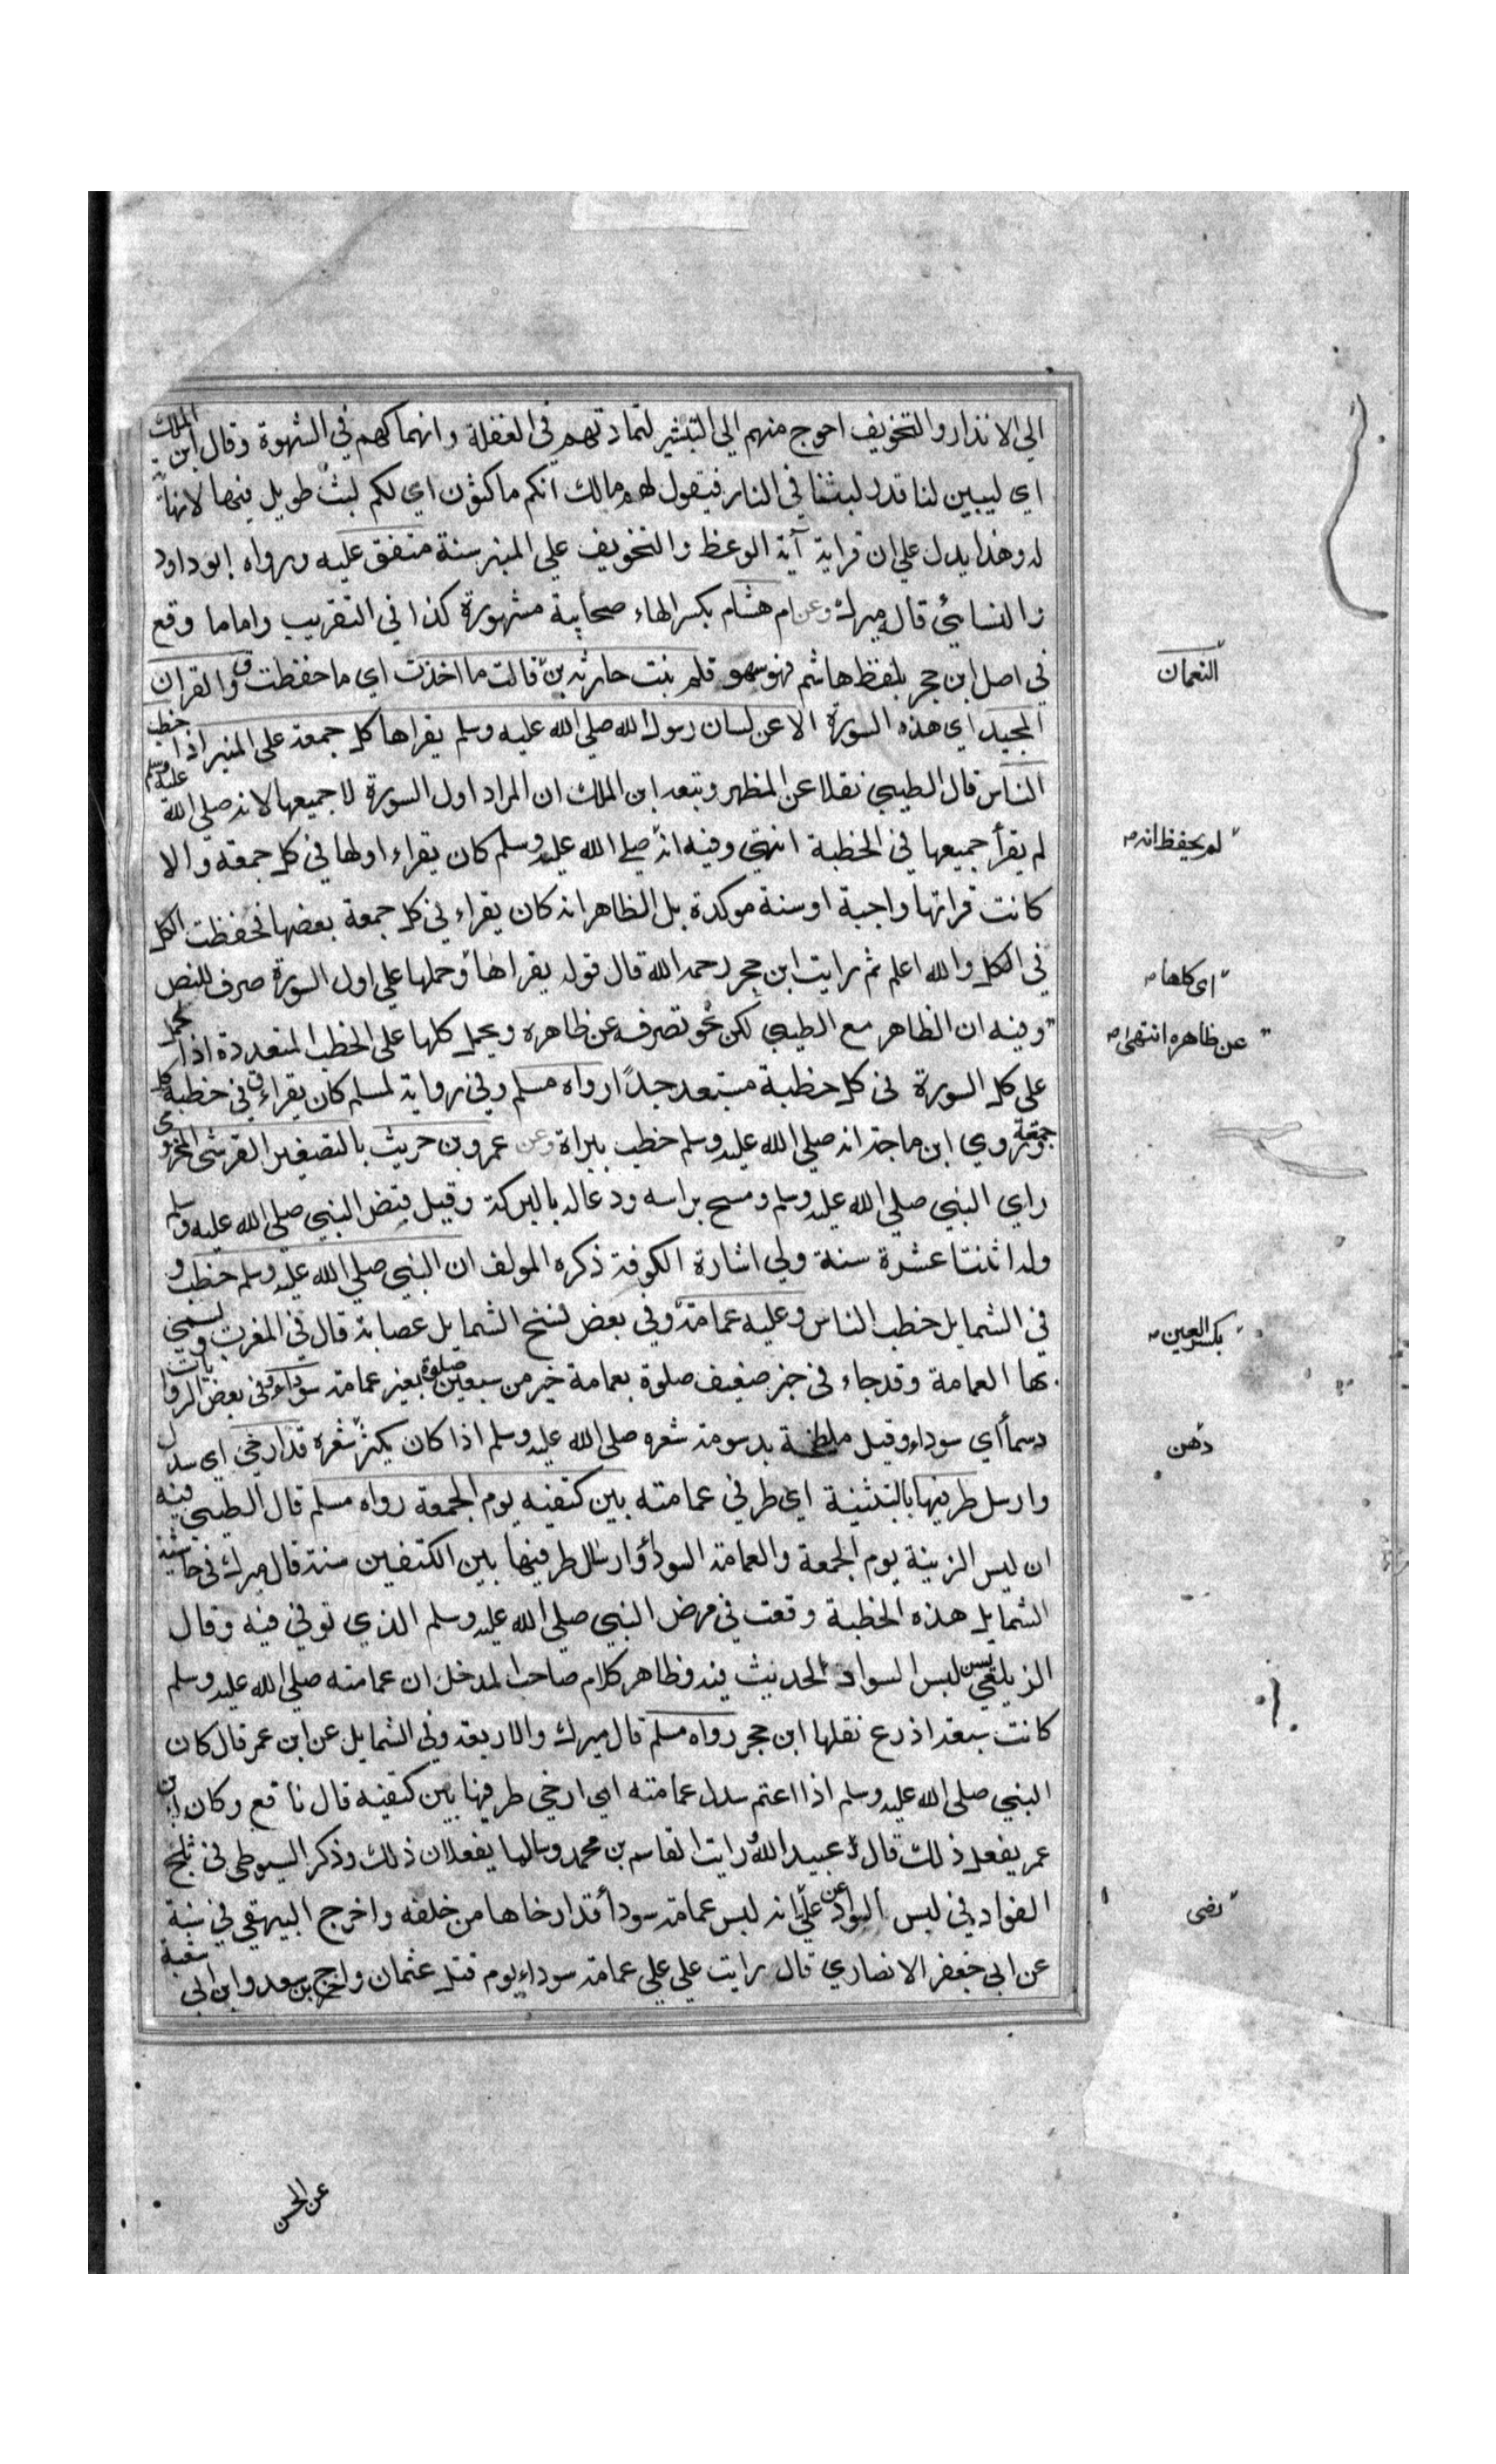 الي الانذار والتخويف احوج منهم الي التبشير لتماديهم في الغفلة وانهماكهم في الشهوة وقال ابن الملك
اي ليبين لنا قدر لبثنا في النار فيقول لهم مالك انكم ماكثون اي لكم لبث طويل فيها لانهاية
له وهذا يدل علي ان قراية آية الوعظ والتخويف علي المنبر سنة متفق عليه ورواه ابوداود
والنسائي قاله ميرك وعن ام هشام بكسر الهاء صحابية مشهورة كذا في التقريب واما ما وقع
في اصل ابن حجر بلفظ هاشم فهو سهو قلم بنت حارثه بن قالت ما اخذت اي ما حفظت ق والقران
النعمان
المجيد اي هذه السورة الا عن لسان رسول الله صلي الله عليه وسلم يقراها كل جمعة علي المنبر اذا خطب
الناس قال الطيبي نقلا عن المظهر وتبعه ابن الملك ان المراد اول السورة لا جميعها لانه صلي الله عليه وسلم
لم يقرأ جميعها في الخطبة انتهي وفيه انه صلي الله عليه وسلم كان يقراء اولها في كل جمعة والا
لم يحفظ انه
كانت قراتها واجبة او سنة موكدة بل الظاهر انه كان يقراء في كل جمعة بعضها فحفظت الكل
في الكل والله اعلم ثم رايت ابن حجر رحمه الله قال قوله يقراها وحملها علي اول السورة صرف للنص
اي كلها
وفيه ان الظاهر مع الطيبي لكن نحو تصرفه عن ظاهره ويحمل كلها علي الخطب المتعددة اذا يحمل
عن ظاهره انتهي
علي كل السورة في كل خطبة مستبعد جدًا رواه مسلم وفي رواية لمسلم كان يقراء ق في خطبة كل
جمعة وروي ابن ماجة انه صلي الله عليه وسلم خطب ببراة وعن عمرو بن حريث بالتصغير القرشي المخزومي
راي النبي صلي الله عليه وسلم ومسح براسه ودعا له بالبركة وقيل قبض النبي صلي الله عليه وسلم
وله اثنتا عشرة سنة ولي اشارة الكوفة ذكره المولف ان النبي صلي الله عليه وسلم خطب و
في الشمايل خطب الناس وعليه عمامة وفي بعض نسخ الشمايل عصابة قال في المغرب ويسمي
بكسر العين
بها العمامة وقد جاء في خبر ضعيف صلوة بعمامة خير من سبعين صلوة بغير عمامة سوداء وفي بعض الروايات
دسمأ اي سوداء وقيل ملطخة بدسومة شعره صلي الله عليه وسلم اذا كان يكثر شعره قد ارخي اي سدل
دهن
وارسل طرفيها بالتثنية اي طرفي عمامته بين كتفيه يوم الجمعة رواه مسلم قال الطيبي فيه
ان لبس الزينة يوم الجمعة والعمامة السودأ وارسال طرفيها بين الكتفين سنة قال ميرك في حاشية
الشمايل هذه الخطبة وقعت في مرض النبي صلي الله عليه وسلم الذي توفي فيه وقال
الزيلعي يسن لبس السواد لحديث فيه وظاهر كلام صاحب المدخل ان عمامته صلي الله عليه وسلم
كانت سبعة اذرع نقلها ابن حجر رواه مسلم قال ميرك والاربعة وفي الشمايل عن ابن عمر قال كان
النبي صلي الله عليه وسلم اذا اعتم سدل عمامته اي ارخي طرفيها بين كتفيه قال نافع وكان ابن
عمر يفعل ذلك قال عبيد الله رايت القاسم بن محمد وسالما يفعلان ذلك وذكر السيوطي في ثلج
الفواد في لبس السواد عن علي انه لبس عمامة سودأ قد ارخاها من خلفه واخرج البيهقي في
رضي
عن ابي جعفر الانصاري قال رايت علي علي عمامة سوداء يوم قتل عثمان واخرج بن سعد وابن ابي شيبة
عن الحسن